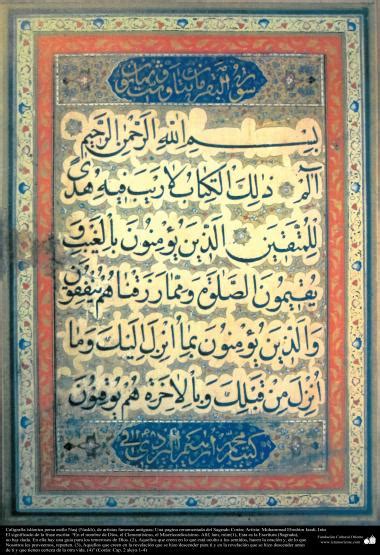 سورة البقرة مائتان وست وثمانون
بسم الله الرحمن الرحيم
الم ذلك الكتاب لا ريب فيه هدى
للمتقين الذين يؤمنون بالغيب و
يقيمون الصلوة ومما رزقناهم ينفقون
والذين يؤمنون بما انزل اليك وما
انزل من قبلك وبالاخرة هم يوقنون
Caligrafía islámica persa estilo Nasj (Naskh), de artistas famosos antiguos; Una pagina ornamentada del Sagrado Corán; Artista: Mohammad Ebrahim
El significado de la frase escrita: "En el nombre de Dios, el Clementísimo, el Misericordiosísimo.
no haz duda. En ella hay una guía para los temerosos de Dios. (2), Aquellos que creen en lo que está oculto a los sentidos, hacen la oración y, de lo que
Nosotros les proveemos, reparten. (3), Aquellos que creen en la revelación que se hizo descender para ti y en la revelación que se hizo descender antes
de ti y que tienen certeza de la otra vida. (4)" (Corán: Cap. 2 aleya 1-4)
Fundación Cultural Oriente